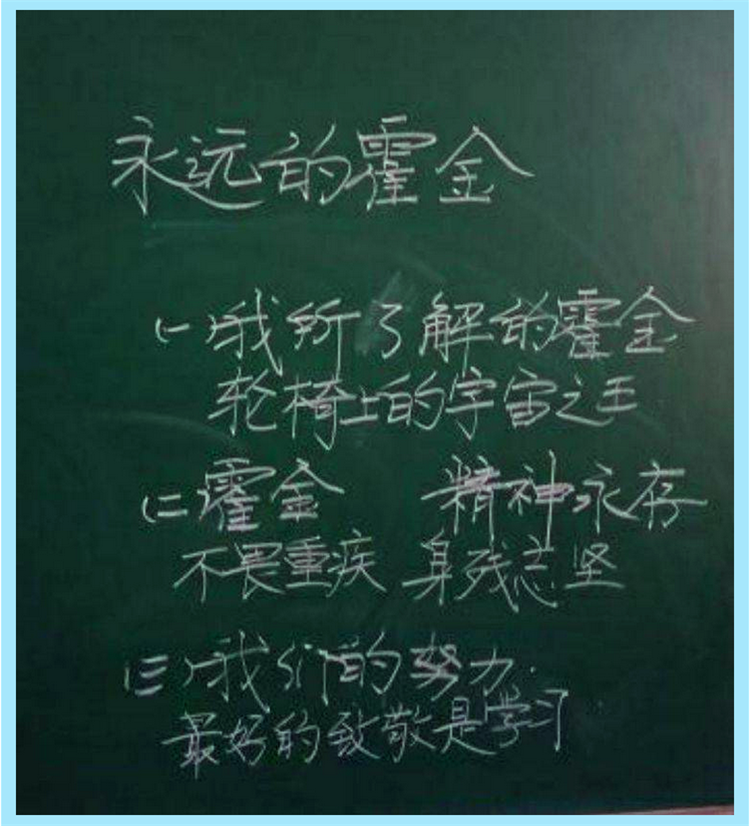 永远的霍金
(一)我所了解的霍金
轮椅上的宇宙之王
(二霍金 精神永存
不畏重疾 身残志坚
(三)我们的努力.
最好的致敬是学习